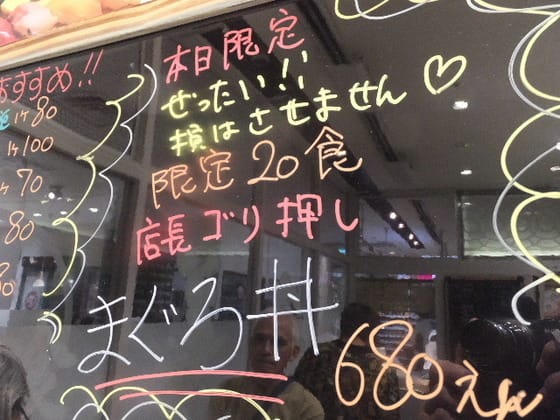 おすすめ!!
180
100
70
80
本日限定
ぜったい!!
損はさせません♡
限定20食
店長ゴリ押し
まぐろ丼
680えん